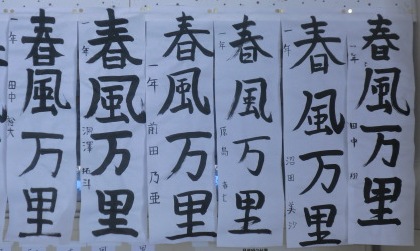 春風万里
一年 田中
春風万里
一年
春風万里
一年 前田 乃亜
春風万里
一年
春風万里
一年 沼田 美沙
春風万里
一年 田中